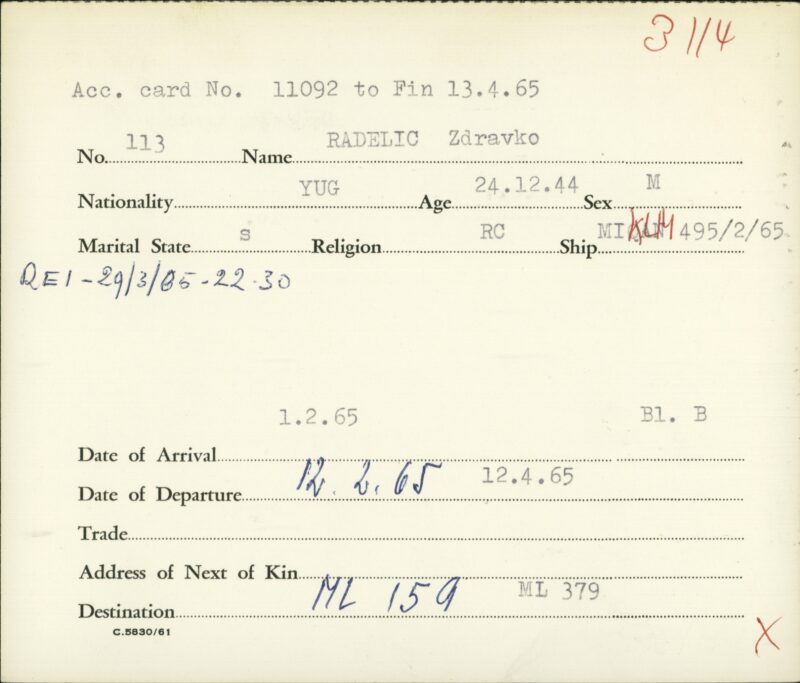 3 1/4
Acc. card No. 11092 to Fin 13.4.65
No. 113 Name RADELIC Zdravko
Nationality YUG Age 24.12.44 Sex M
Marital State s Religion RC Ship KLM 495/2/65
REI - 29/3/65 - 22.30
1.2.65 Bl. B
Date of Arrival
Date of Departure 12.2.65 12.4.65
Trade
Address of Next of Kin
Destination ML 159 ML 379
C.5830/61
X